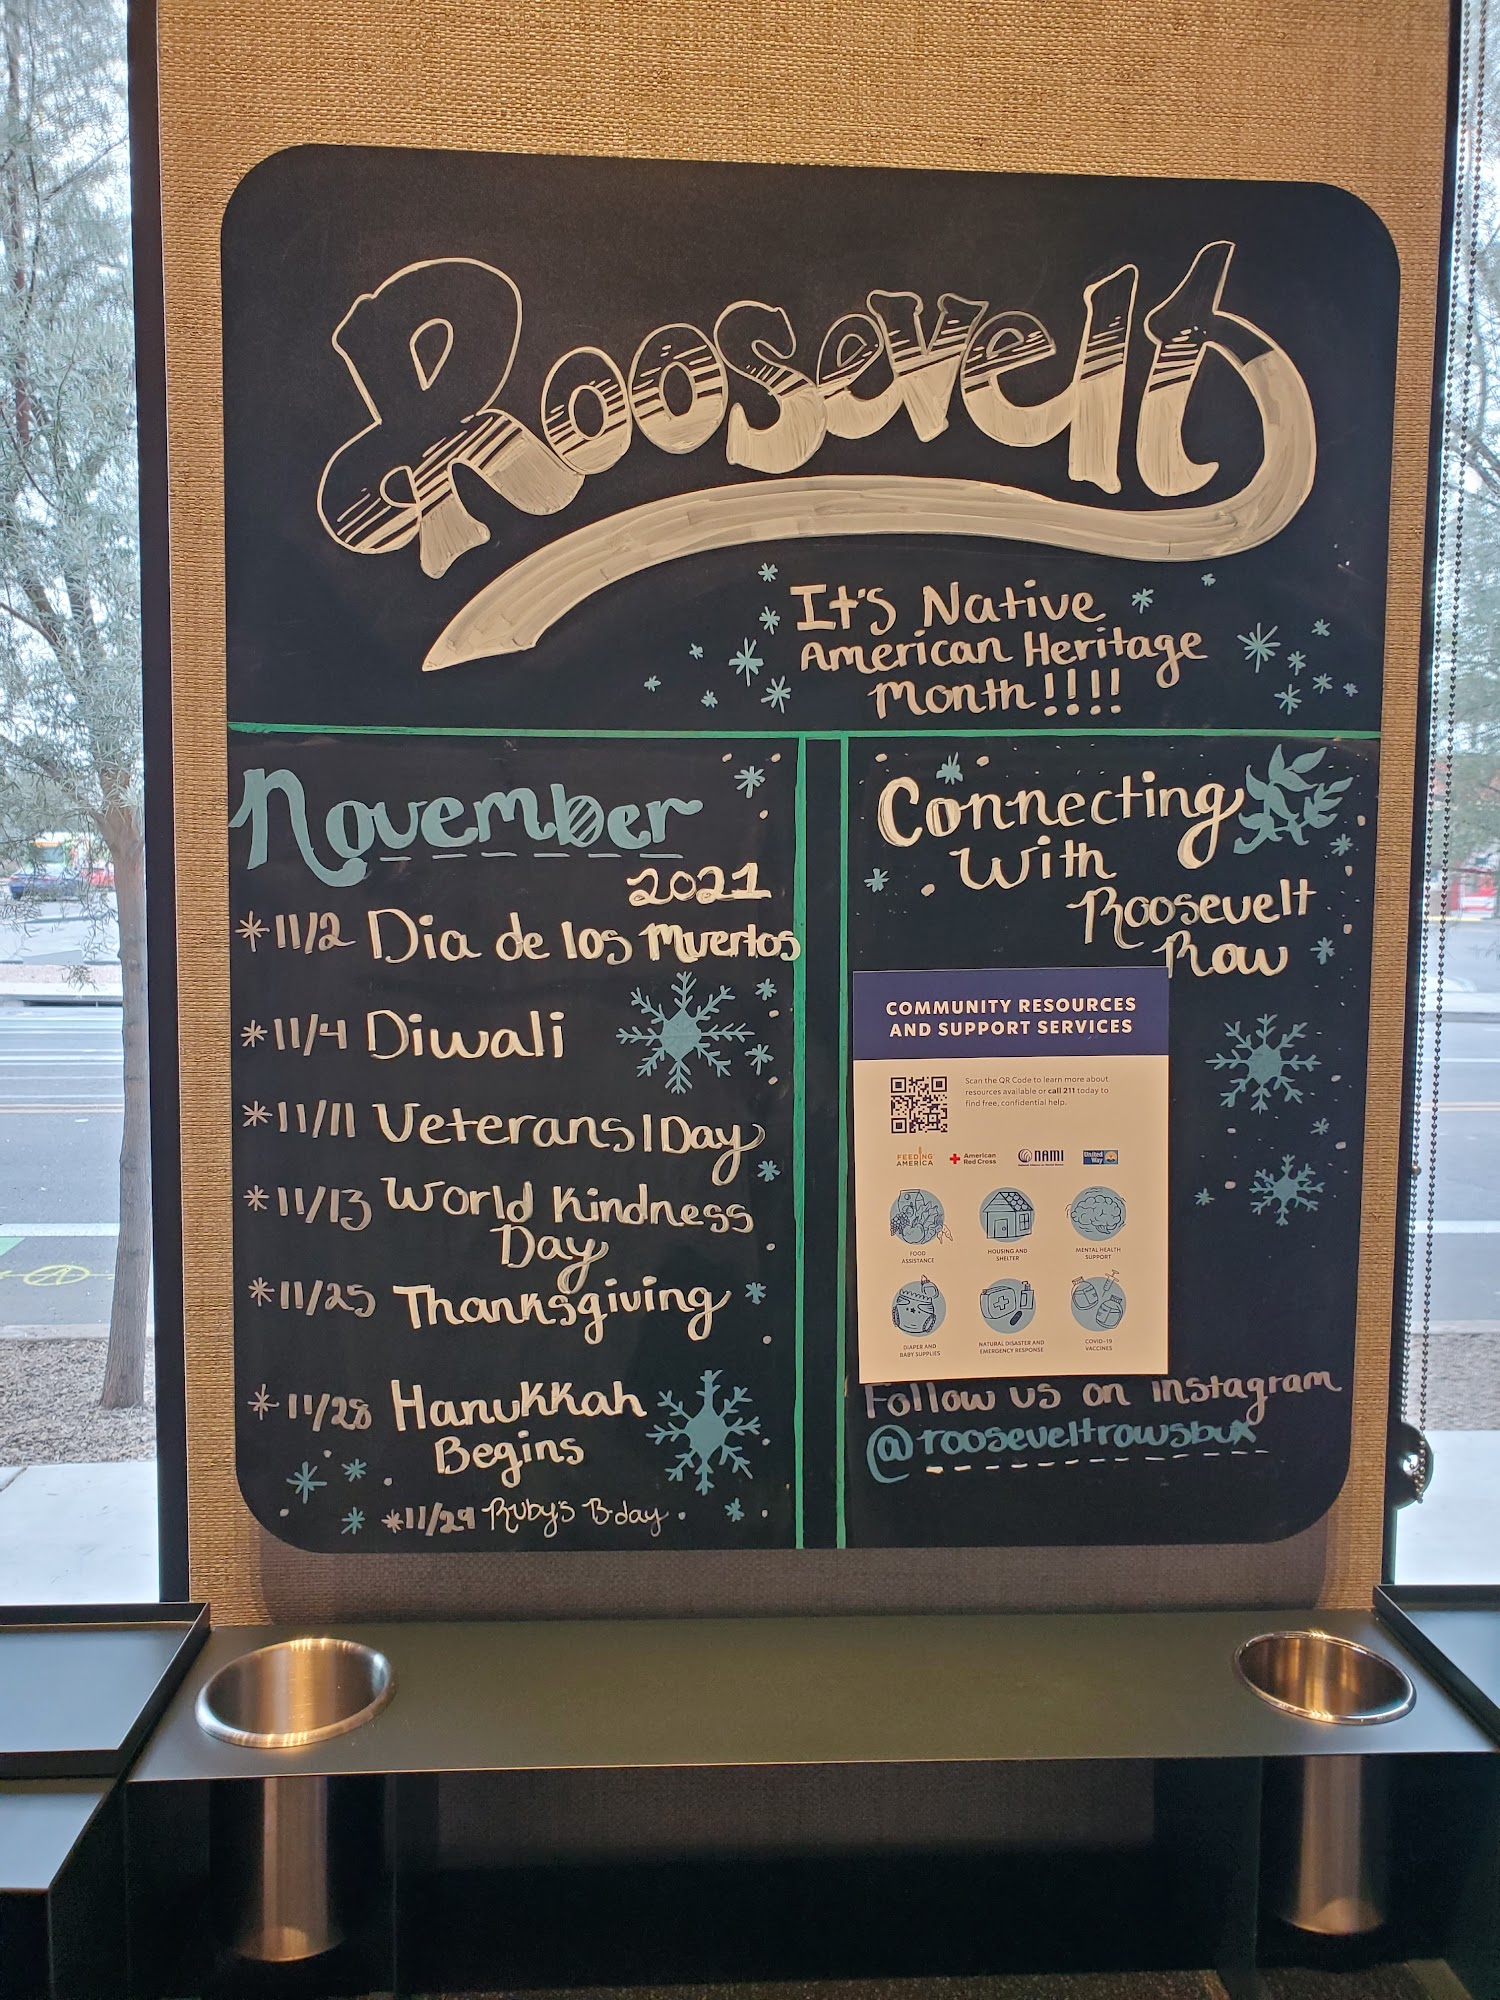 Roosevelt
It's Native
American Heritage
Month!!!!
November
2021
*11/2 Dia de los Muertos
*11/4 Diwali
*11/11 Veterans Day
*11/13 World Kindness
Day
*11/25 Thanksgiving
*11/28 Hanukkah
Begins
*11/29 Ruby's B-day
Connecting
With
Roosevelt
Row
COMMUNITY RESOURCES
AND SUPPORT SERVICES
Scan the QR Code to learn more about
resources available or call 211 today to
find free, confidential help.
FEEDING
AMERICA
American
Red Cross
NAMI
United
Way
FOOD
ASSISTANCE
HOUSING AND
SHELTER
MENTAL HEALTH
SUPPORT
DIAPER AND
BABY SUPPLIES
NATURAL DISASTER AND
EMERGENCY RESPONSE
COVID-19
VACCINES
Follow us on Instagram
@rooseveltrowsbux